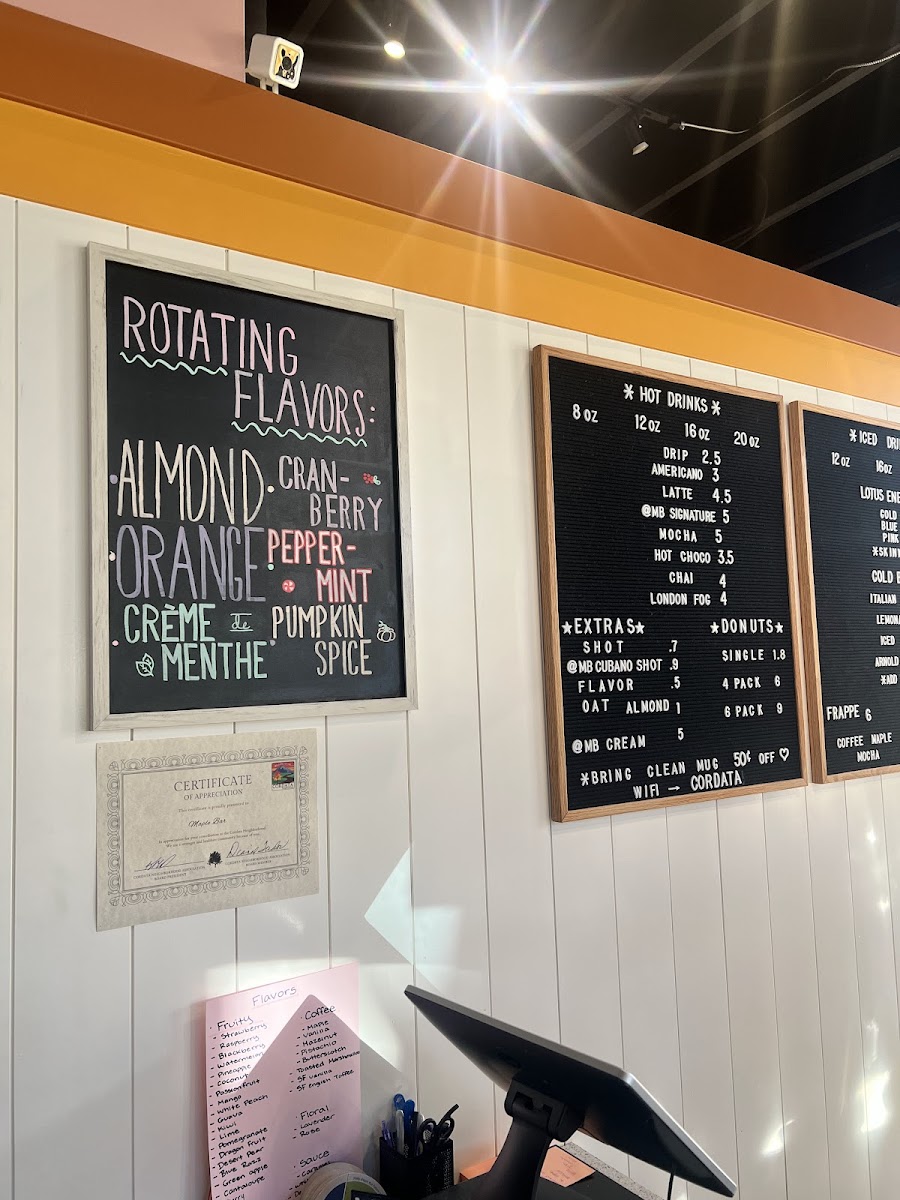 ROTATING
FLAVORS:
ALMOND
ORANGE
CRÈME de
MENTHE
CRAN-
BERRY
PEPPER-
MINT
PUMPKIN
SPICE
CERTIFICATE
OF APPRECIATION
This certificate is proudly presented to
Maple Bar
Flavors
· Fruity
- Strawberry
- Raspberry
- Blackberry
- Watermelon
- Pineapple
- Coconut
- Passionfruit
- Mango
- White Peach
- Guava
- Kiwi
- Lime
- Pomegranate
- Dragon Fruit
- Desert Pear
- Blue Razz
- Green apple
- Cantaloupe
· Coffee
- Maple
- Vanilla
- Hazelnut
- Pistachio
- Butterscotch
- Toasted Marshmallow
- SF vanilla
- SF english Toffee
· Floral
- Lavender
- Rose
· Sauce
* HOT DRINKS *
8 OZ 12 OZ 16 OZ 20 OZ
DRIP 2.5
AMERICANO 3
LATTE 4.5
@MB SIGNATURE 5
MOCHA 5
HOT CHOCO 3.5
CHAI 4
LONDON FOG 4
★EXTRAS★
SHOT .7
@MB CUBANO SHOT .9
FLAVOR .5
OAT ALMOND 1
@MB CREAM 5
★DONUTS★
SINGLE 1.8
4 PACK 6
6 PACK 9
*BRING CLEAN MUG 50¢ OFF ♡
WIFI → CORDATA
* ICED DRI
12 OZ 16OZ
LOTUS ENE
COLD
BLUE
PINK
*SKINN
COLD B
ITALIAN
LEMONA
ICED
ARNOLD
*ADD
FRAPPE 6
COFFEE MAPLE
MOCHA